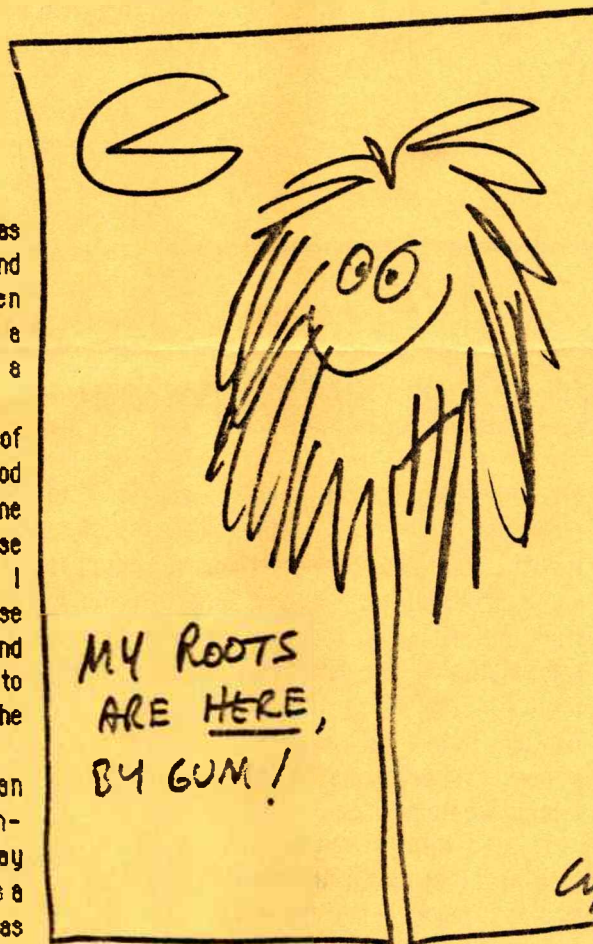 as
nd
en
a
a
of
od
ne
se
I
se
nd
to
he
an
n-
ay
s a
as
MY ROOTS
ARE HERE,
BY GUM!